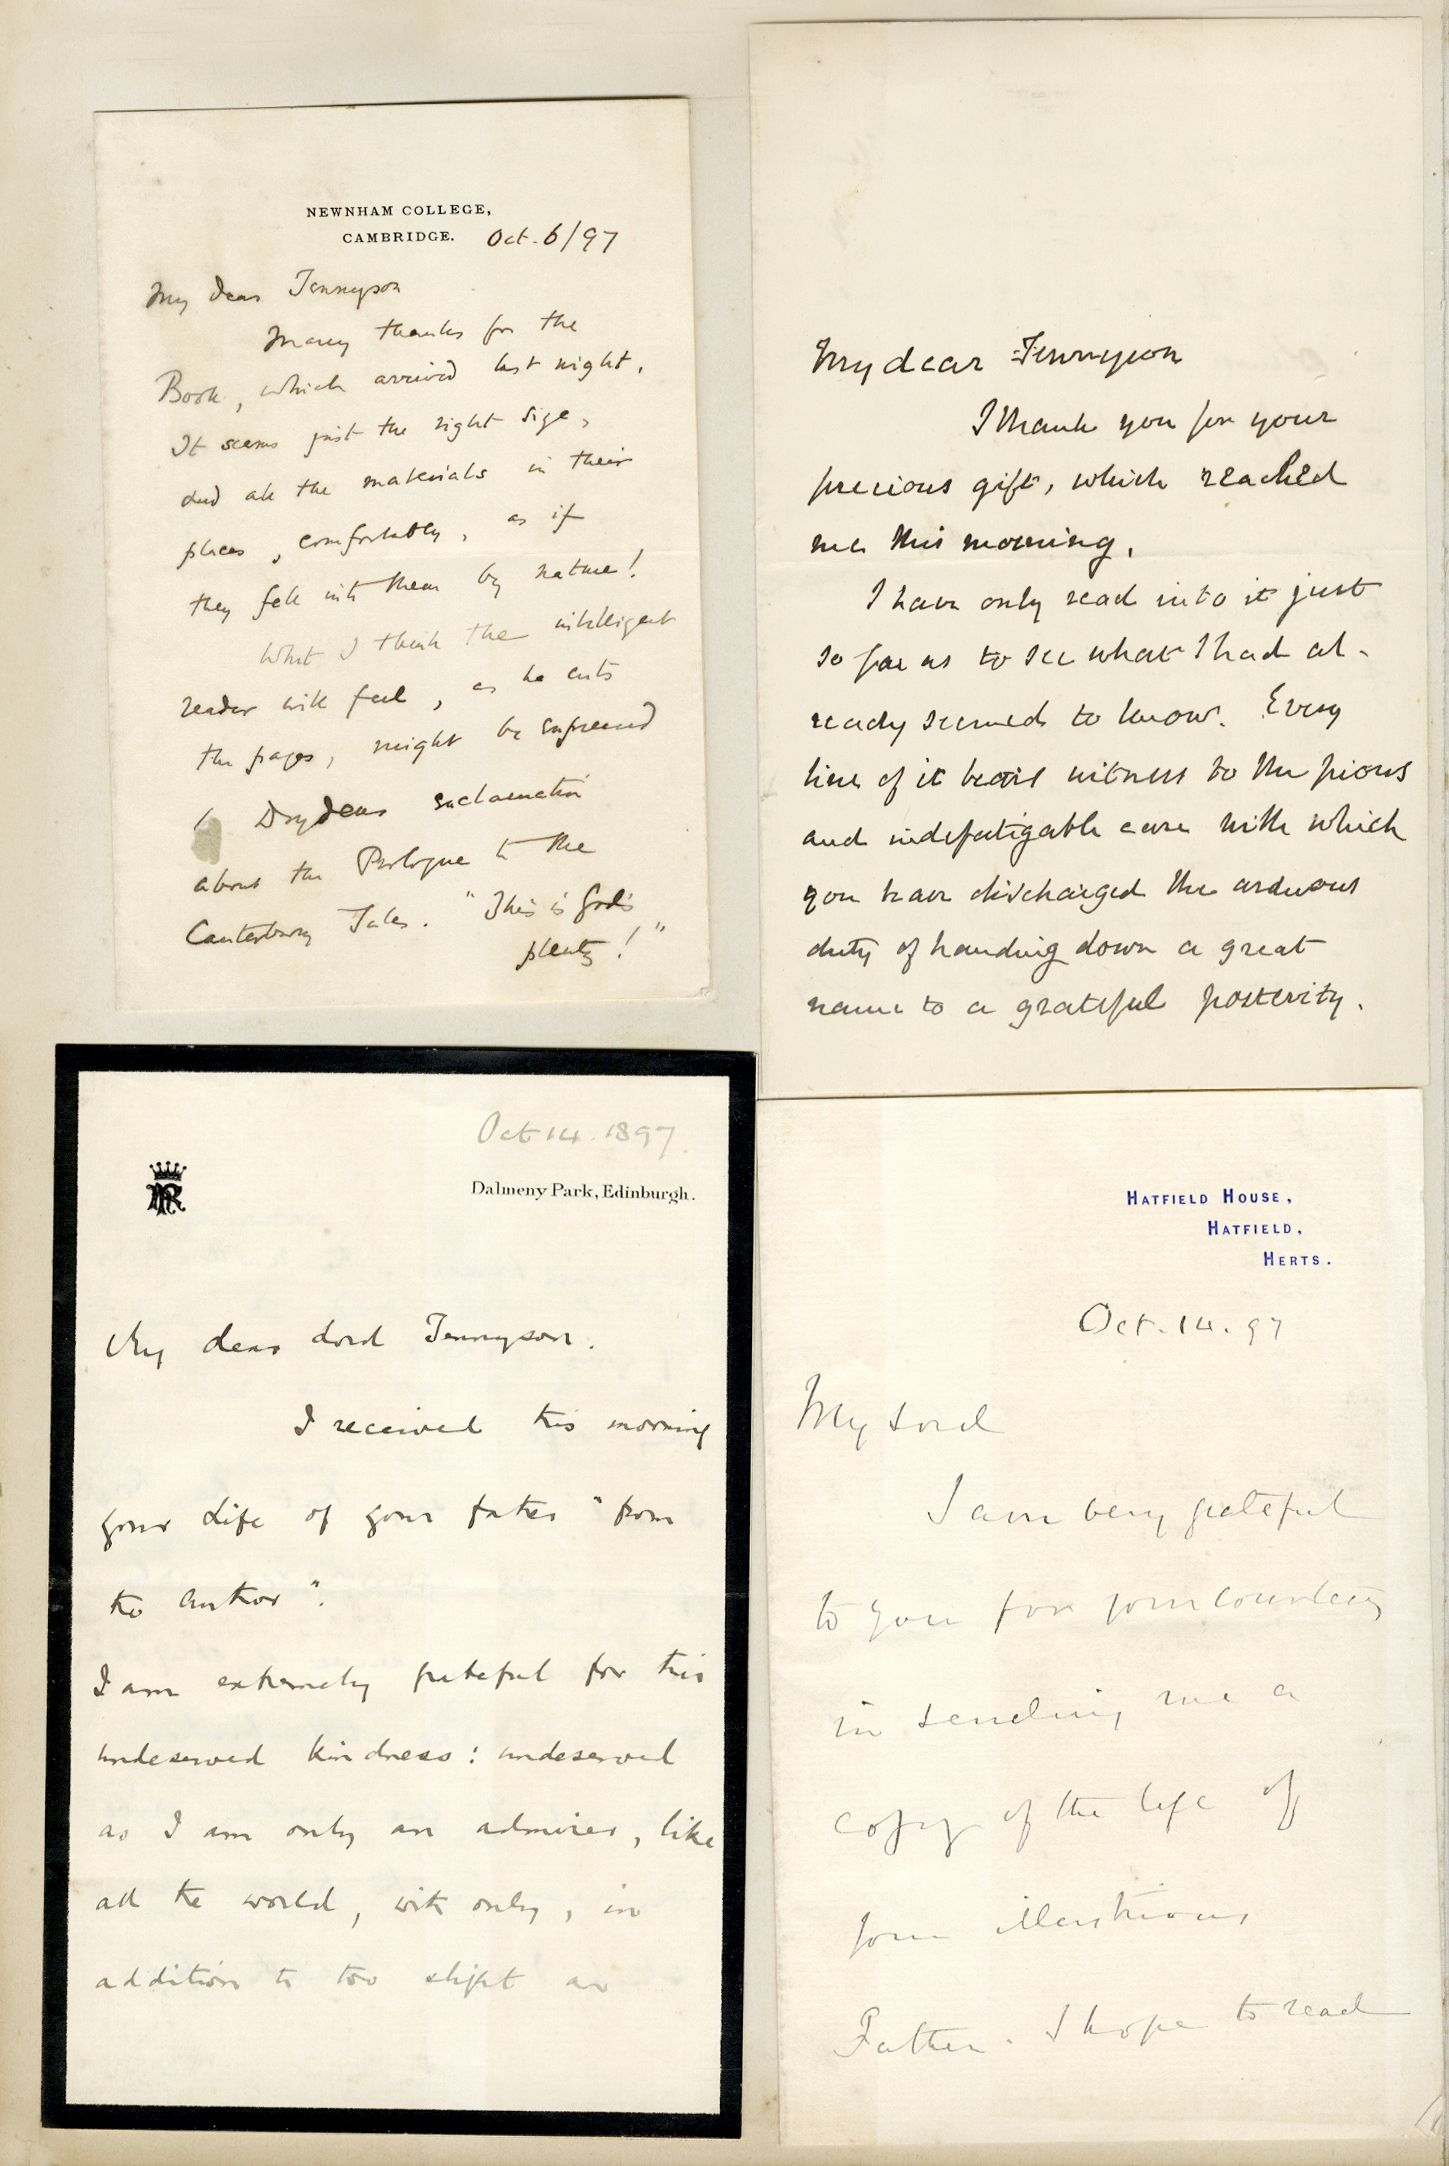 NEWNHAM COLLEGE,
CAMBRIDGE. Oct. 6/97
My dear Tennyson
Many thanks for the
Book, which arrived last night.
It seems just the right size,
and all the materials in their
places, comfortably, as if
they fell into them by nature!
What I think the intelligent
reader will feel, as he cuts
the pages, might be expressed
by Drydens exclamation
about the Prologue to the
Canterbury Tales. "This is God's
plenty!"
My dear Tennyson
I thank you for your
precious gift, which reached
me this morning.
I have only read into it just
so far as to see what I had al-
ready seemed to know. Every
line of it bears witness to the pious
and indefatigable care with which
you have discharged the arduous
duty of handing down a great
name to a grateful posterity.
Oct 14. 1897.
Dalmeny Park, Edinburgh.
My dear Lord Tennyson.
I received this morning
your Life of your father "from
the author".
I am extremely grateful for this
undeserved kindness: undeserved
as I am only an admirer, like
all the world, with only, in
addition to too slight an
HATFIELD HOUSE,
HATFIELD,
HERTS.
Oct. 14. 97
My Lord
I am very grateful
to you for your courtesy
in sending me a
copy of the life of
your illustrious
Father. I hope to read